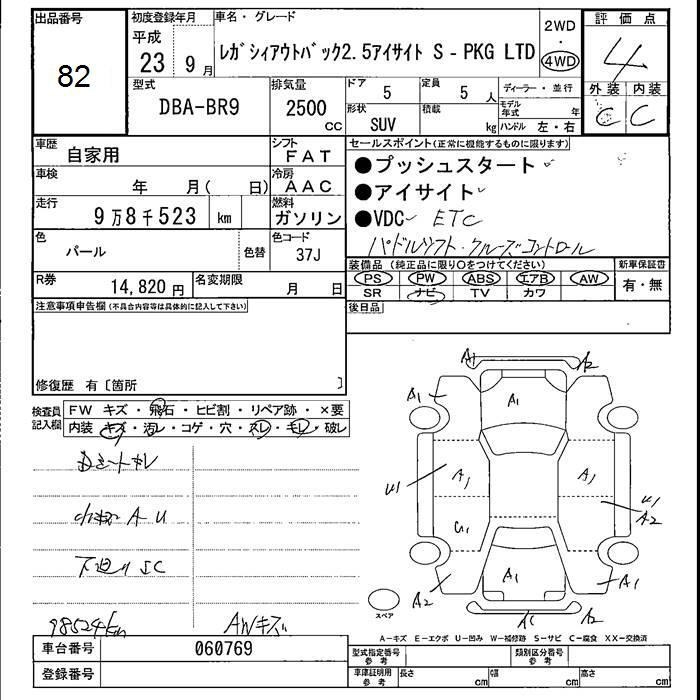 出品番号 初度登録年月 車名・グレード 2WD 評価点
82 平成 23 9月 レガシィアウトバック2.5アイサイト S-PKG LTD ・ 4WD 4
型式 排気量 ドア 定員 ディーラー・並行 外装 内装
DBA-BR9 2500 CC 5 5人 モデル年式 年 C C
形状 積載
SUV kg ハンドル 左・右
車歴 自家用 シフト FAT セールスポイント(正常に機能するものに限ります)
車検 年 月( 日) 冷房 AAC ●プッシュスタート
走行 9万8千523 km 燃料 ガソリン ●アイサイト
●VDC ETC
色 パール 色替 色コード 37J パドルシフト・クルーズコントロール
装備品(純正品に限り○をつけてください) 新車保証書
R券 14,820円 名変期限 月 日 PS PW ABS エアB AW 有・無
SR ナビ TV カワ
注意事項申告欄(不具合内容等は具体的に記入して下さい) 後日品
修復歴 有〔箇所 〕
検査員記入欄 FW キズ・飛石・ヒビ割・リペア跡・×要
内装・キズ・汚レ・コゲ・穴・スレ・モレ・破レ
A1 A2
A1 A1 A2
A1 A1
A2
G1
A1
A2 A1
A2
スペア
小キズ A U
下廻り SC
98524km AWキズ
A-キズ E-エクボ U-凹み W-補修跡 S-サビ C-腐食 XX-交換済
車台番号 060769 型式指定番号 参考 類別区分番号 参考
登録番号 車庫証明用 参考 長さ cm 幅 cm 高さ cm